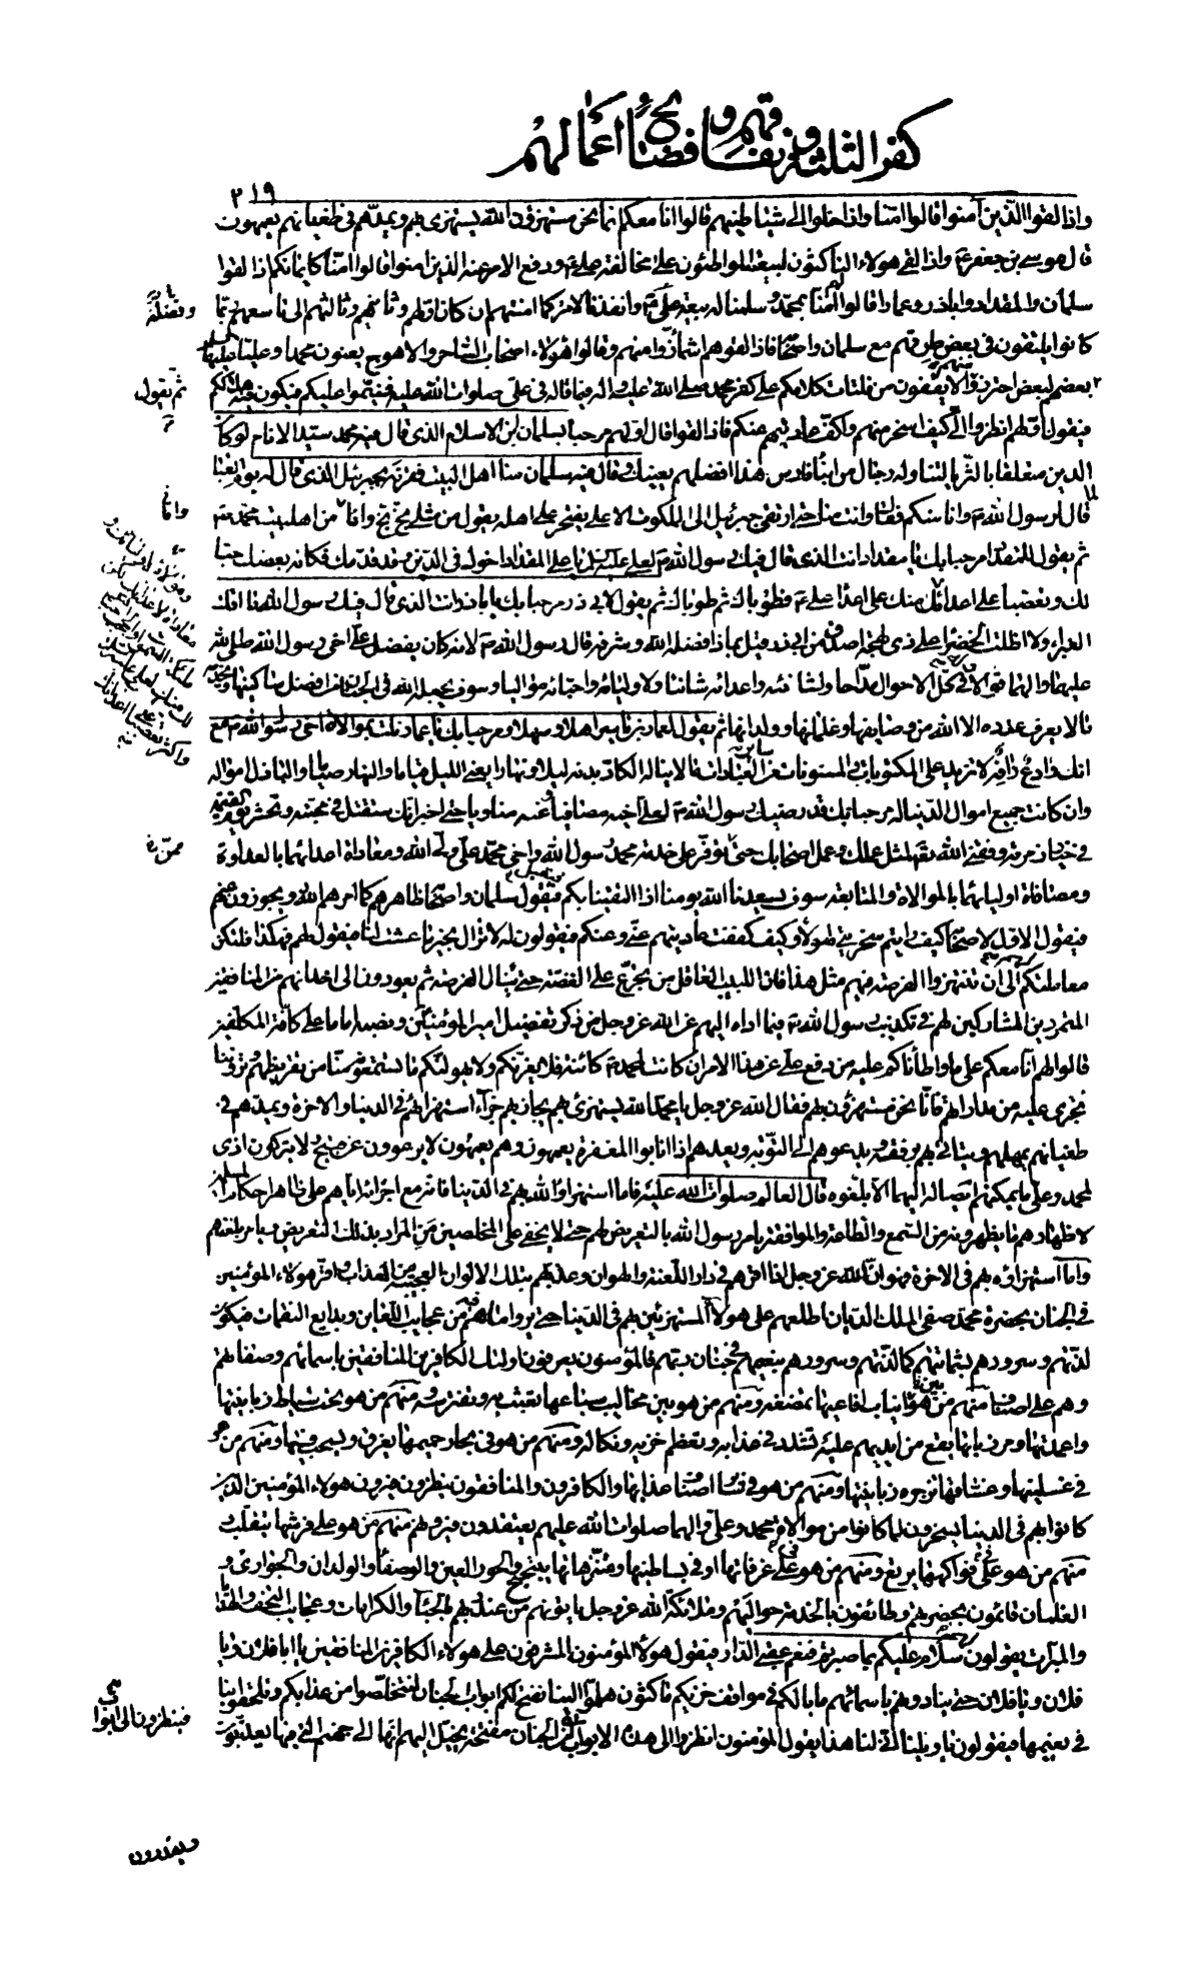 كفر الثلثة و نفاقهم و فضائح اعمالهم
٢١٩
واذا لقوا الذين آمنوا قالوا امنا واذا خلوا الى شياطينهم قالوا انا معكم انما نحن مستهزؤن الله يستهزئ بهم ويمدهم فى طغيانهم يعمهون
قال موسى بن جعفر ع واذا لقى هؤلاء الناكثون للبيعة المواطئون على مخالفة على ع ودفع الامر عنه الذين امنوا قالوا امنا كايمانكم اذا لقوا
سلمان والمقداد واباذر وعمار قالوا لهم امنا بمحمد وسلمنا له بيعة على ع وانفذنا لامره كما امنتم ان كان اولهم وثانيهم وثالثهم الى تاسعهم ربما
وفضله
كانوا يلتقون فى بعض طرقهم مع سلمان واصحابه فاذا لقوهم اشمأزوا منهم وقالوا هؤلاء اصحاب الساحر والاهوج يعنون محمدا وعليا
بعضهم لبعض احترزوا لا يقفون من فلتات كلامكم على كفر محمد صلى الله عليه واله فيما قاله فى على صلوات الله عليه فينموا عليكم فيكون فيه هلاككم
ثم يقول
فيقول اولهم انظروا الى كيف اسخر منهم واكف عاديتهم عنكم فاذا لقوا قال اولهم مرحبا بسلمان ابن الاسلام الذى قال فيه محمد سيد الانام لو كان
الدين معلقا بالثريا لتناوله رجال من ابناء فارس هذا افضلهم يعنيك وقال فيه سلمان منا اهل البيت فقرنه بجبرئيل الذى قال له يوم العبا
قال لرسول الله ص وانا منكم فقال وانت منا حتى ارتقى جبرئيل الى الملكوت الاعلى يفتخر على اهله يقول من مثلى بخ بخ وانا من اهل بيت محمد ص
وانا
ثم يقول للمقداد مرحبا بك يا مقداد انت الذى قال فيك رسول الله ص لعلى ع يا على المقداد اخوك فى الدين وقد قد منك فكانه بعضك حبا
لك وتعصبا على اعدائك
ثم يقول لابى ذر مرحبا بك يا باذر انت الذى قال فيك رسول الله ما اقلت
الغبراء ولا اظلت الخضراء على ذى لهجة اصدق من ابى ذر قيل بماذا فضله الله وشرفه قال رسول الله ص لانه كان بفضل على اخى رسول الله صلى الله
عليهما والهما قوالا فى كل الاحوال مداحا ولشانئيه واعدائه شانئا ولاوليائه واحبائه مواليا وسوف يجعله الله فى الجنان من افضل ساكنيها
ما لا يعرف عدده الا الله من وصايفها وغلمانها وولدانها ثم يقول لعمار بن ياسر اهلا وسهلا ومرحبا بك يا عمار نلت بموالاة اخى رسول الله ص مع
انك وادع رافه لا تزيد على المكتوبات والمسنونات من سائر العبادات ما لا يناله الكاد بدنه ليلا ونهارا يعنى الليل قياما والنهار صياما والباذل امواله
وان كانت جميع اموال الدنيا له مرحبا بك قد رضيك رسول الله ص لعلى اخيه مصافيا وعنه مناويا حتى اخبر انك ستقتل فى محبته وتحشر يوم القيمة
فى خيار زمرته وفقنى الله تعالى لمثل عملك وعمل اصحابك حتى نوفر على خدمة محمد رسول الله واخى محمد على ولى الله ومعاداة اعدائهما بالعداوة
ممن
ومصافاة اوليائهما بالموالاة والمتابعة سوف يسعدنا الله يومنا اذا التقينا بكم فيقول سلمان واصحابه ظاهرهم كما امرهم الله ويجوزون عنهم
فيقول الاول لاصحابه كيف رايتم سخريتى بهؤلاء وكيف كففت عاديتهم عنى وعنكم فيقولون له لا تزال بخير ما عشت لنا فيقول لهم فهكذا فلتكن
معاملتكم الى ان تنتهزوا الفرصة فيهم مثل هذا فان اللبيب العاقل من تجرع على الغصة حتى ينال الفرصة ثم يعودون الى اخدانهم من المنافقين
المتمردين المشاركين لهم فى تكذيب رسول الله ص فيما اداه اليهم عن الله عز وجل من ذكر تفضيل امير المؤمنين ونصبه اماما على كافة المكلفين
قالوا لهم انا معكم على ما واطاناكم عليه من دفع على عن هذا الامر ان كانت لمحمد ص كائنة فلا يغرنكم ولا يهولنكم ما تسمعونه منا من تقريظهم وترونا
نجرى عليه من مداراتهم فانا نحن مستهزؤن بهم فقال الله عز وجل يا محمد الله يستهزئ بهم يجازيهم جزاء استهزائهم فى الدنيا والاخرة ويمدهم فى
طغيانهم يمهلهم ويتأنى بهم برفقه ويدعوهم الى التوبة ويعدهم اذا انابوا المغفرة يعمهون وهم يعمهون لا يرعوون عن قبيح ولا يتركون اذى
لمحمد وعلى ما يمكنهم ايصاله اليهما الا بلغوه قال العالم صلوات الله عليه فاما استهزاؤ الله بهم فى الدنيا فانه مع اجرائه اياهم على ظاهر احكام المسلمين
لاظهارهم ما يظهرونه من السمع والطاعة والموافقة يامر رسول الله بالتعريض لهم حتى لا يخفى على المخلصين من المراد بذلك التعريض ويامر بلعنهم
واما استهزاؤه بهم فى الاخرة فهو ان الله عز وجل اذا اقرهم فى دار اللعنة والهوان وعذبهم بتلك الالوان العجيبة من العذاب واقر هؤلاء المؤمنين
فى الجنان بحضرة محمد صفى الملك الديان اطلعهم على هؤلاء المستهزئين بهم فى الدنيا حتى يروا ما هم فيه من عجايب اللعاين وبدايع النقمات فيكون
لذتهم وسرورهم بشماتتهم كما لذتهم وسرورهم بنعيمهم فى جنان ربهم فالمؤمنون يعرفون اولئك الكافرين المنافقين باسمائهم وصفاتهم
وهم على اصناف منهم من هو بين انياب افاعيها تمضغه ومنهم من هو بين مخاليب سباعها تعبث به وتفترسه ومنهم من هو تحت سياط زبانيتها
واعمدتها ومرزباتها يقع من ايديهم عليه تشدد فى عذابه وتعظم خزيه ونكاله ومنهم من هو فى بحار حميمها يغرق ويسحب فيها ومنهم من هو
فى غسلينها وغساقها تزجره زبانيتها ومنهم من هو فى ساير اصناف عذابها والكافرون والمنافقون ينظرون فيرون هؤلاء المؤمنين الذين
كانوا بهم فى الدنيا يسخرون لما كانوا من موالاة محمد وعلى والهما صلوات الله عليهم يعتقدون فيرونهم منهم من هو على فرشها يتقلب
منهم من هو على فواكهها يرتع ومنهم من هو على غرفاتها او فى بساطينها ومتنزهاتها يتبحبح والحور العين والوصفاء والولدان والجوارى و
الغلمان قائمون بحضرتهم وطائفون بالخدمة حواليهم وملائكة الله عز وجل ياتونهم من عند ربهم بالحباء والكرامات وعجايب التحف والهدايا
والمبرات يقولون سلام عليكم بما صبرتم فنعم عقبى الدار فيقول هؤلاء المؤمنون المشرفون على هؤلاء الكافرين المنافقين يا ابا فلان ويا
فلان ويا فلان حتى ينادوهم باسمائهم ما بالكم فى مواقف خزيكم ماكثون هلموا الينا نفتح لكم ابواب الجنان لتتخلصوا من عذابكم وتلحقوا بنا
فى نعيمها فيقولون يا ويلنا انى لنا هذا يقول المؤمنون انظروا الى هذه الابواب من الجنان مفتحة يخيل اليهم انها الى جهنم التى فيها يعذبون
فينظرون الى ابواب
ويقدرون